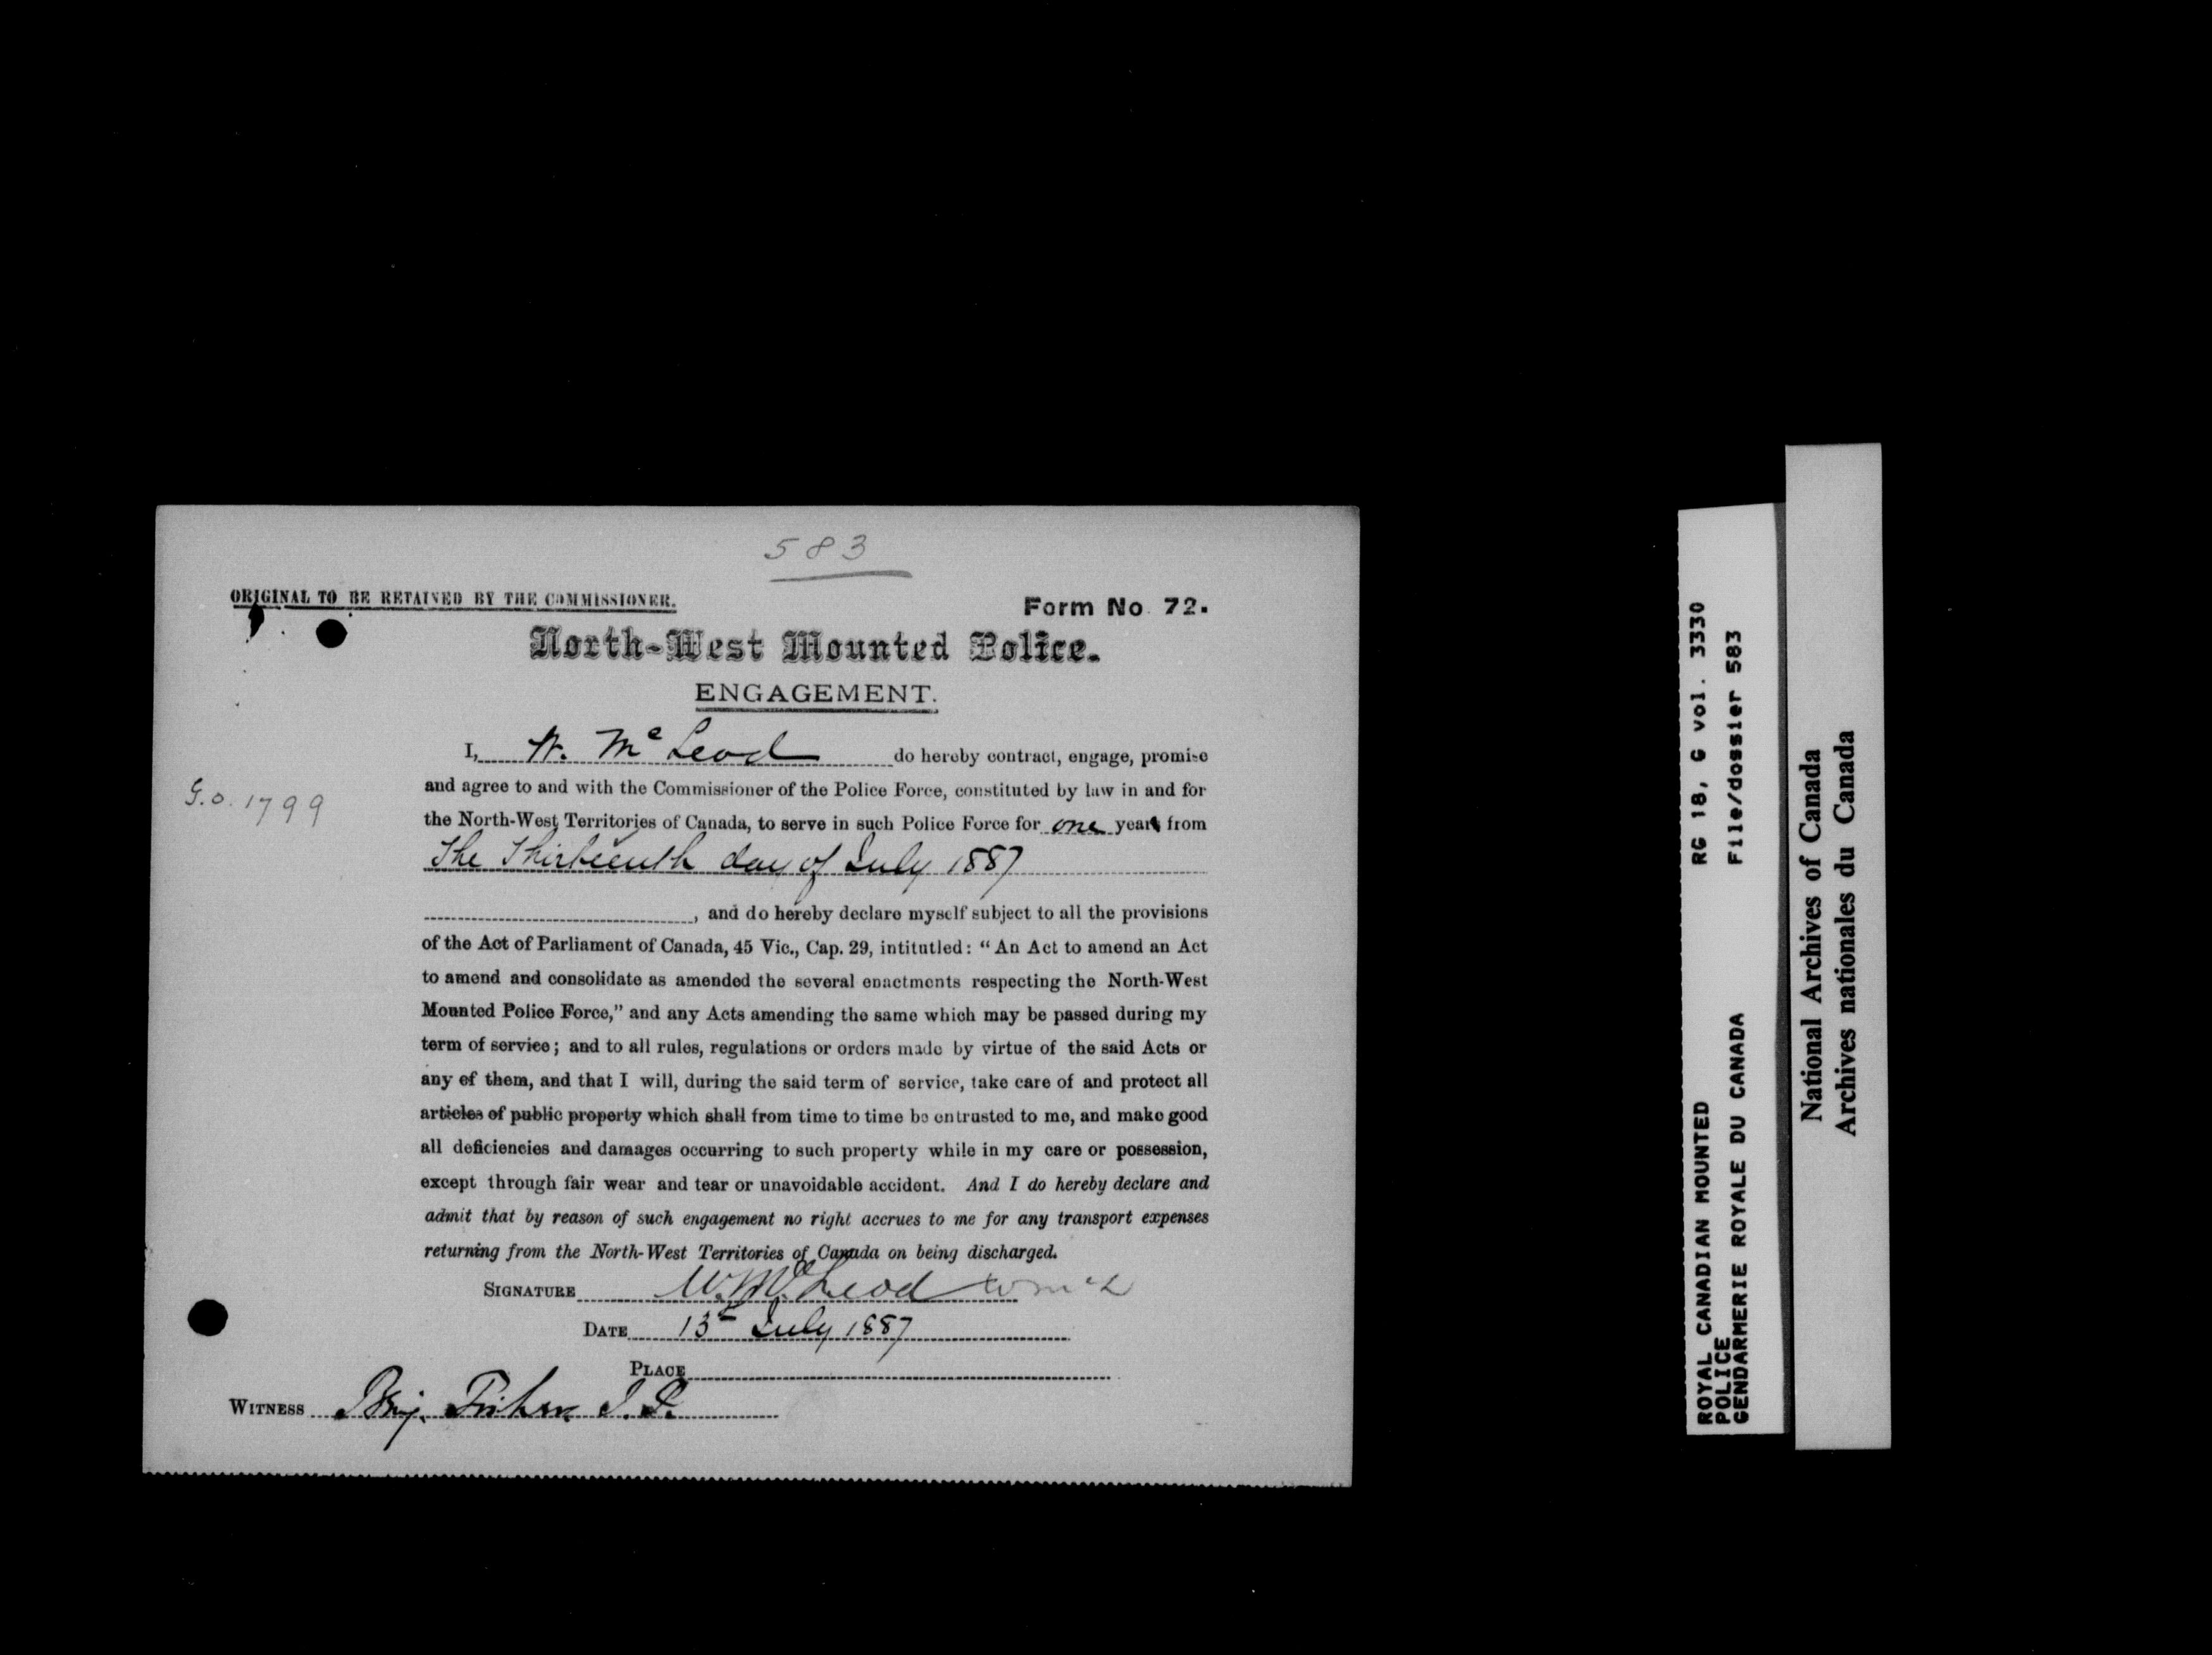 583
ORIGINAL TO BE RETAINED BY THE COMMISSIONER.
Form No 72.
North-West Mounted Police.
ENGAGEMENT.
I, W. McLeod do hereby contract, engage, promise
G.O. 1799
and agree to and with the Commissioner of the Police Force, constituted by law in and for
the North-West Territories of Canada, to serve in such Police Force for one year from
The Thirteenth day of July 1887
, and do hereby declare myself subject to all the provisions
of the Act of Parliament of Canada, 45 Vic., Cap. 29, intitutled: “An Act to amend an Act
to amend and consolidate as amended the several enactments respecting the North-West
Mounted Police Force,” and any Acts amending the same which may be passed during my
term of service; and to all rules, regulations or orders made by virtue of the said Acts or
any of them, and that I will, during the said term of service, take care of and protect all
articles of public property which shall from time to time be entrusted to me, and make good
all deficiencies and damages occurring to such property while in my care or possession,
except through fair wear and tear or unavoidable accident. And I do hereby declare and
admit that by reason of such engagement no right accrues to me for any transport expenses
returning from the North-West Territories of Canada on being discharged.
SIGNATURE W. McLeod W McL
DATE 13th July 1887
PLACE
WITNESS
ROYAL CANADIAN MOUNTED
POLICE
GENDARMERIE ROYALE DU CANADA
RG 18, G vol. 3330
File/dossier 583
National Archives of Canada
Archives nationales du Canada